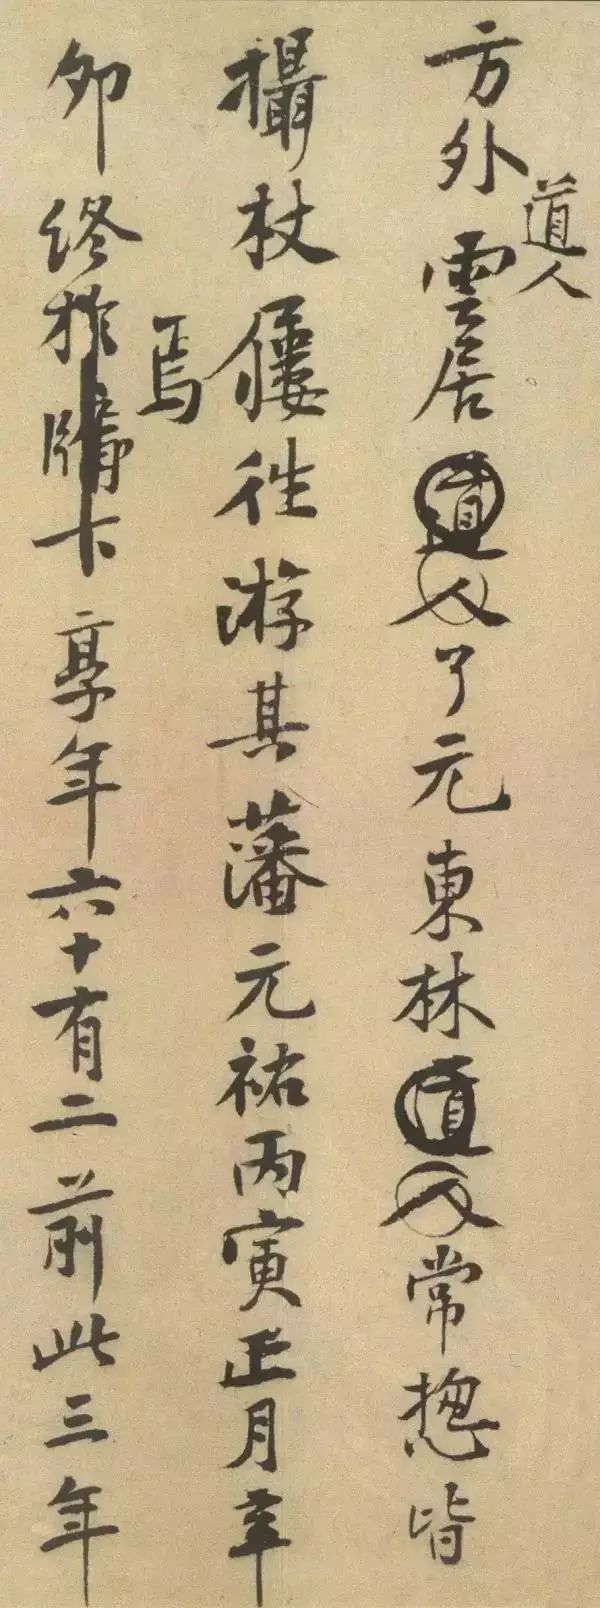 方外雲居道人了元東林道人常揔皆
道人
攝杖屨往游其藩元祐丙寅正月辛
焉
卯終於牖下享年六十有二前此三年